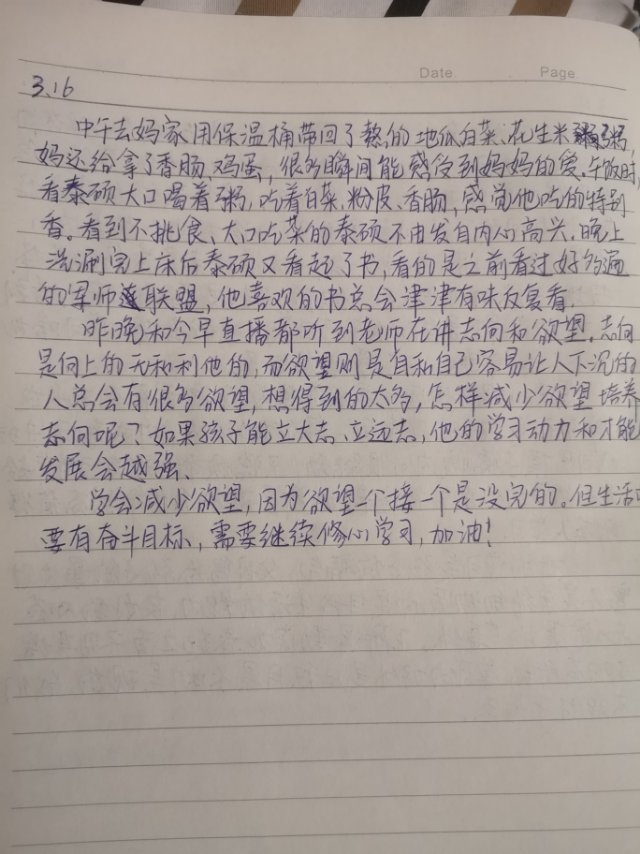 Date. Page.
3.16
中午去妈家用保温桶带回了熬的地瓜白菜、花生米粥,
妈还给拿了香肠、鸡蛋,很多瞬间能感受到妈妈的爱。午饭时
看泰硕大口喝着粥,吃着白菜、粉皮、香肠,感觉他吃的特别
香。看到不挑食、大口吃菜的泰硕不由发自内心高兴。晚上
洗涮完上床后泰硕又看起了书,看的是之前看过好多遍
的军师联盟,他喜欢的书总会津津有味反复看。
昨晚和今早直播都听到老师在讲志向和欲望。志向
是向上的无私利他的,而欲望则是自私自己容易让人下沉的
人总会有很多欲望,想得到的太多,怎样减少欲望培养
志向呢?如果孩子能立大志、立远志,他的学习动力和才能
发展会越强、
学会减少欲望,因为欲望一个接一个是没完的。但生活
要有奋斗目标,需要继续修心学习,加油!